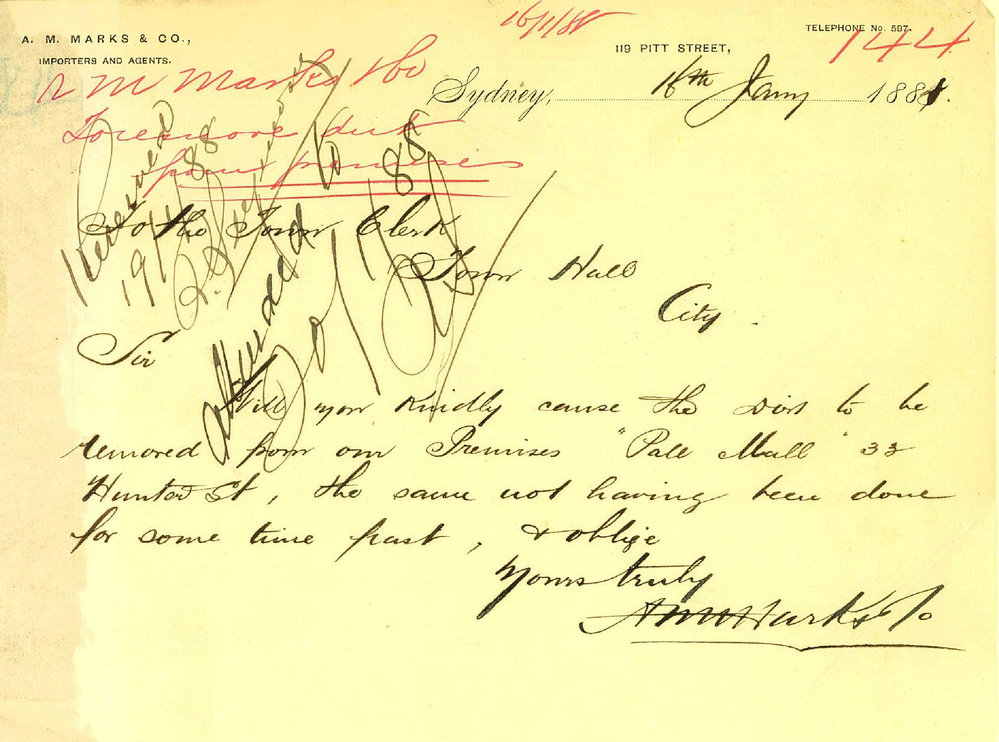 16/1/88
A. M. MARKS & CO.,
IMPORTERS AND AGENTS.
TELEPHONE No. 597.
144
119 PITT STREET,
Sydney, 16th Jany 1888.
A M Marks & Co
To remove dirt
from premises
Removed
19/1/88
Attended to
20/1/88
To the Town Clerk
Town Hall
City.
Sir
Will you Kindly cause the Dirt to be
removed from our Premises "Pall Mall" 33
Hunter St, the same not having been done
for some time past, & oblige
Yours truly
A M Marks & Co